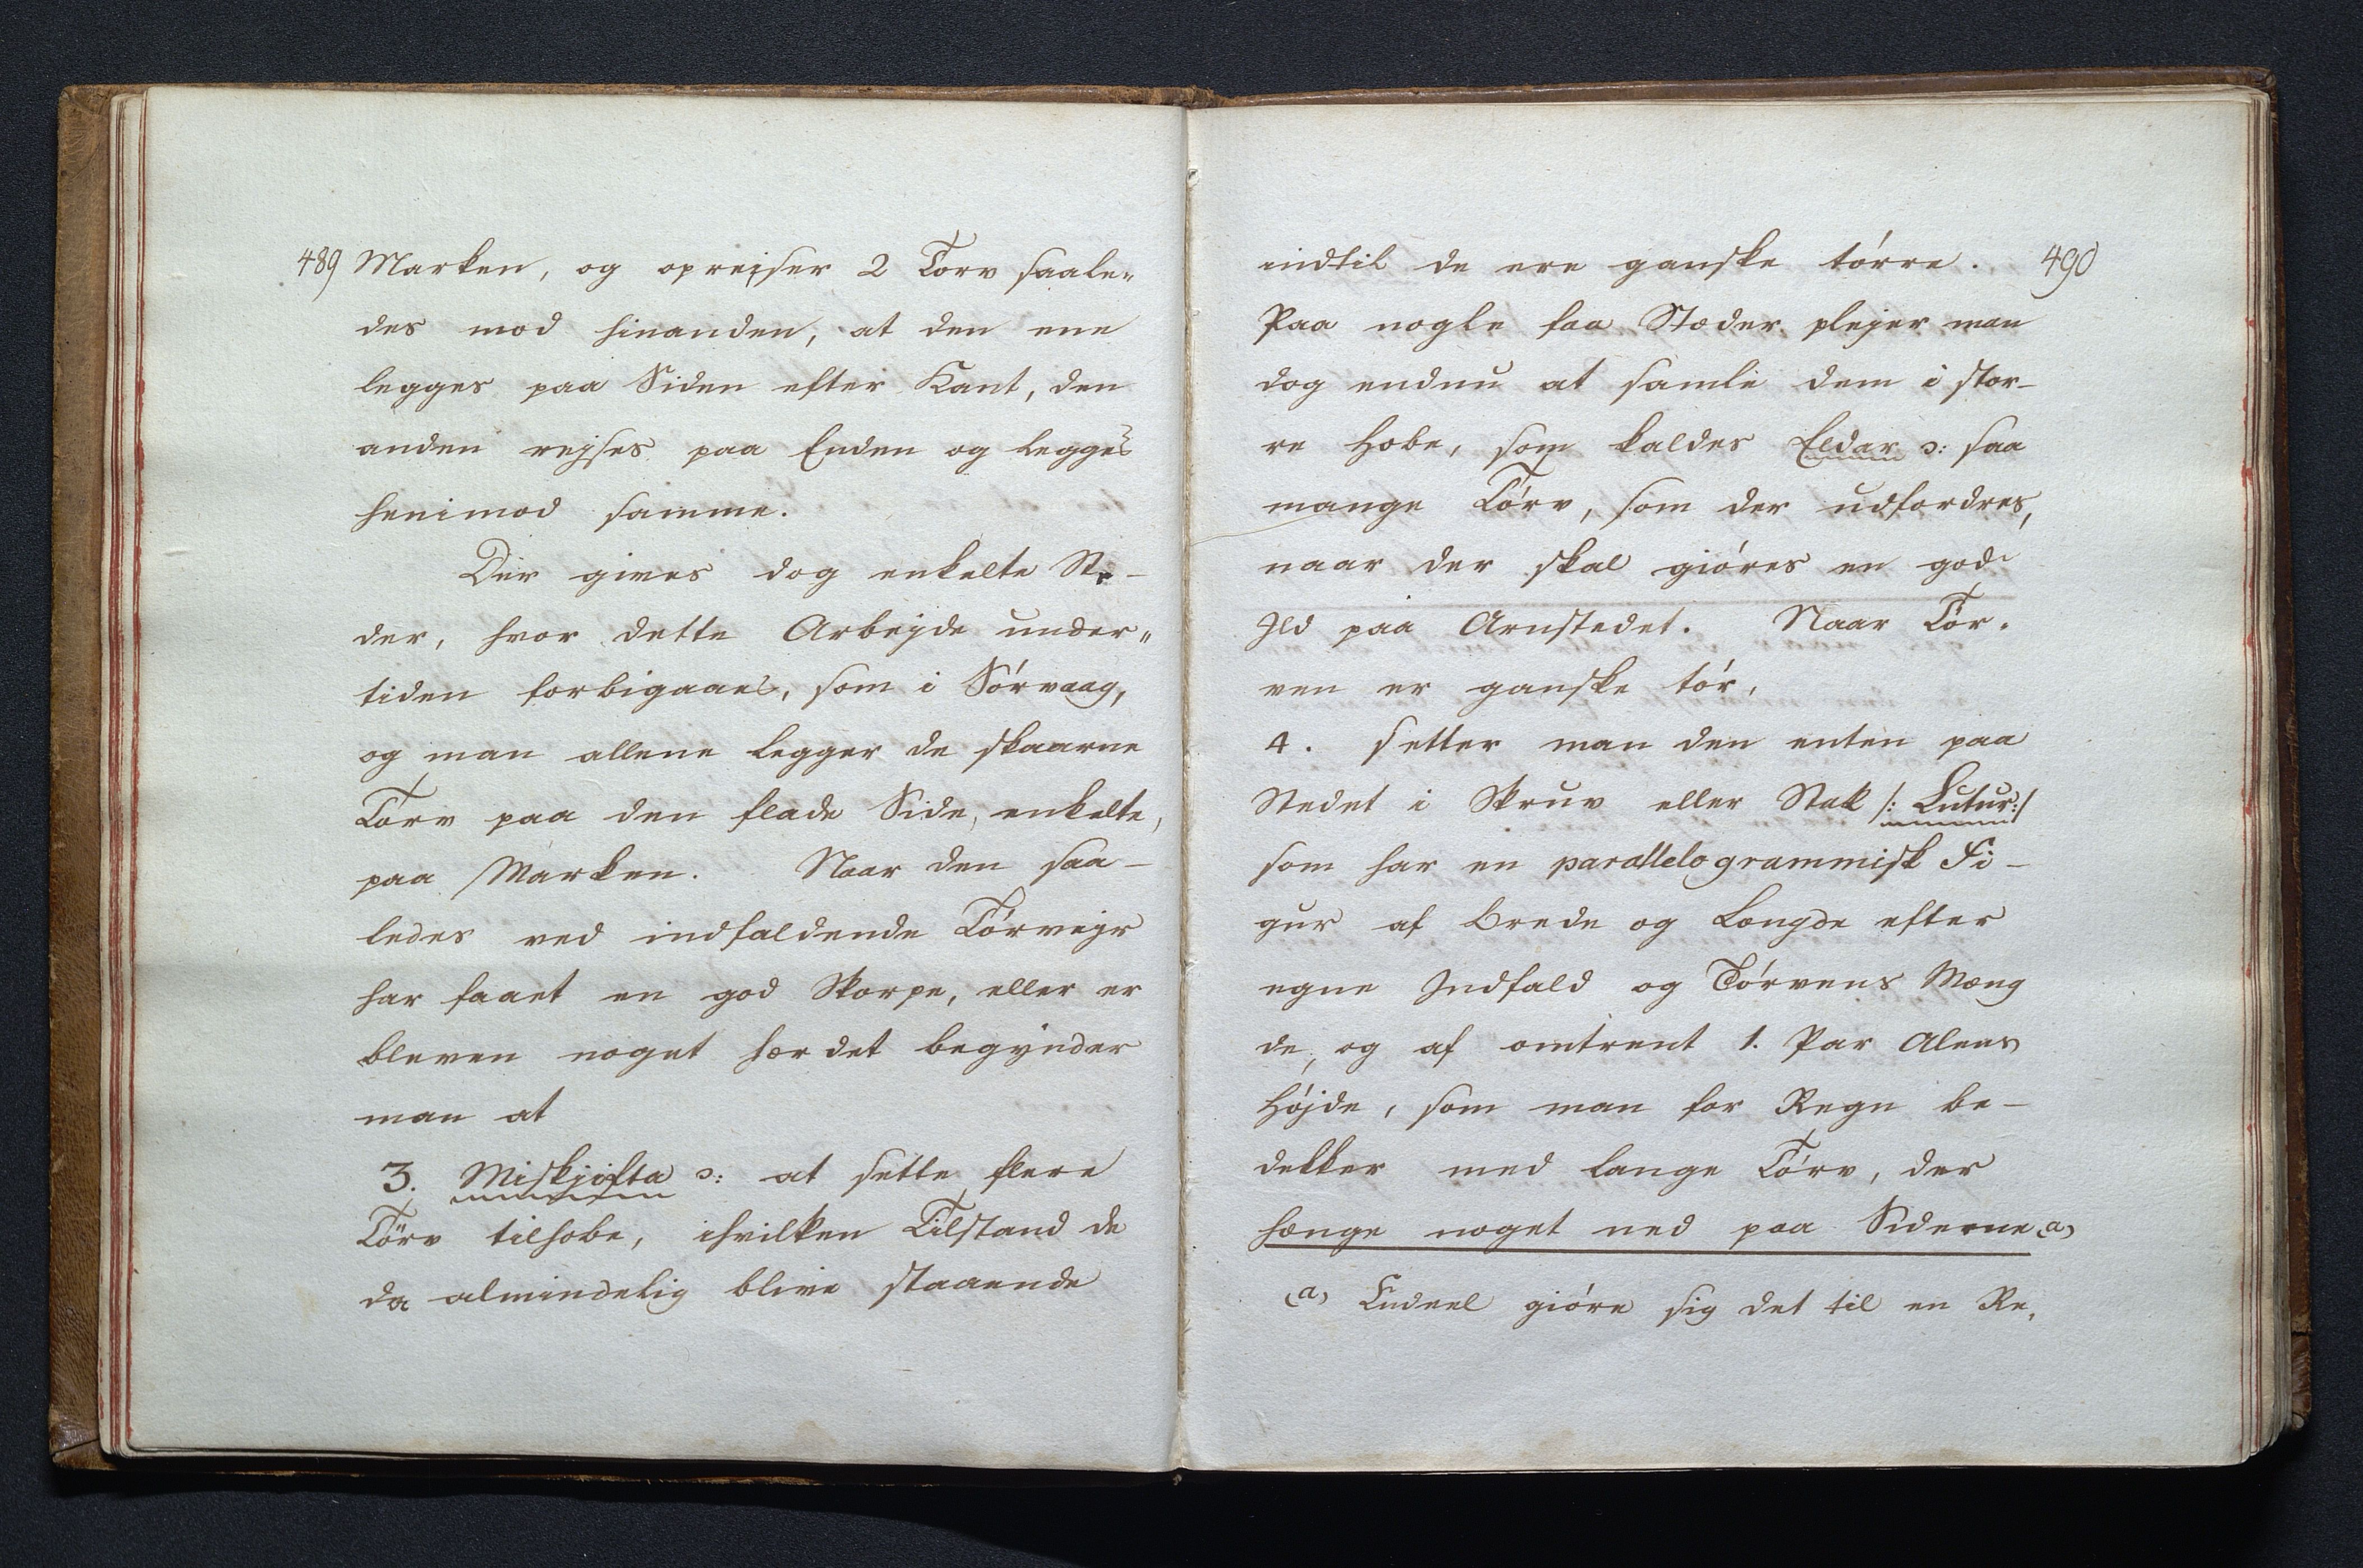 489 Marken, og oprejser 2 Torv saale„
des mod hinanden, at den ene
legges paa Siden efter Kant, den
anden rejses paa Enden og legges
henimod samme.
Der gives dog enkelte Ste-
der, hvor dette Arbejde under„
tiden forbigaaes, som i Sórvaag,
og man allene legger de skaarne
Torv paa den flade Side, enkelte,
paa Marken. Naar den saa-
ledes ved indfaldende Tórvejr
har faaet en god Skorpe, eller er
bleven noget hærdet begÿnder
man at
3. Miskjofta ɔ: at sette flere
Törv tilhobe, ihvilken Tilstand de
da almindelig blive staaende
indtil de ere ganske tórre. 490
Paa nogle faa Stæder plejer man
dog endnu at samle dem i stor-
re Hobe, som kaldes Eldar ɔ: saa
mange Tórv, som der udfordres,
naar der skal gióres en god
Ild paa Arnstedet. Naar Tör-
ven er ganske tór,
4. setter man den enten paa
Stedet i Skruv eller Stak /: Lutur :/
som har en parallelogrammisk Fi-
gur af Brede og Længde efter
egne Indfald og Tórvens Mæng
de, og af omtrent 1. Par Alens
Hójde, som man for Regn be-
dekker med lange Tórv, der
hænge noget ned paa Siderne (a)
(a) Endeel gióre sig det til en Re,